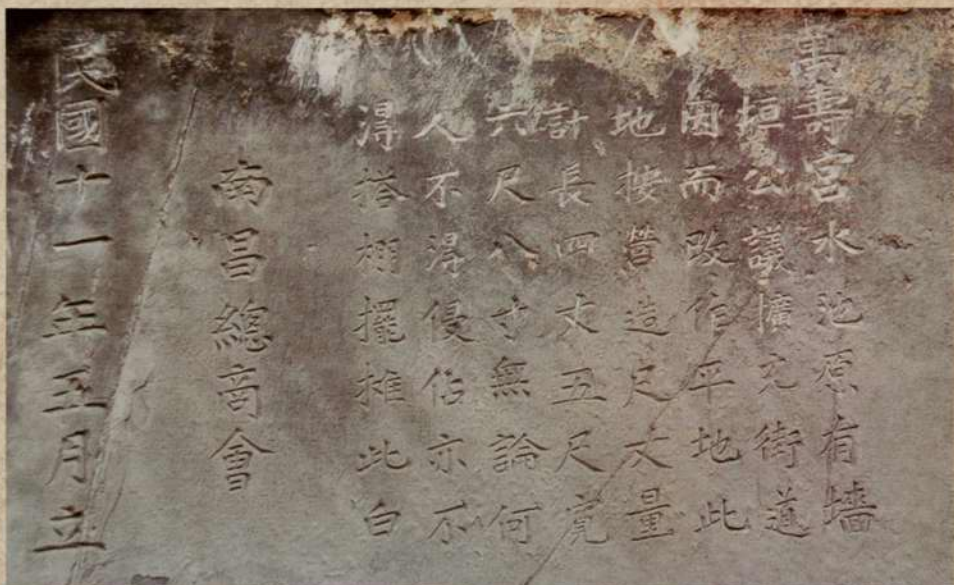 萬壽宮水池原有墻
垣公議擴充街道
因而改作平地此
地按營造尺丈量
計長四丈五尺寬
六尺八寸無論何
人不得侵佔亦不
得搭棚擺攤此白
南昌總商會
民國十一年五月立